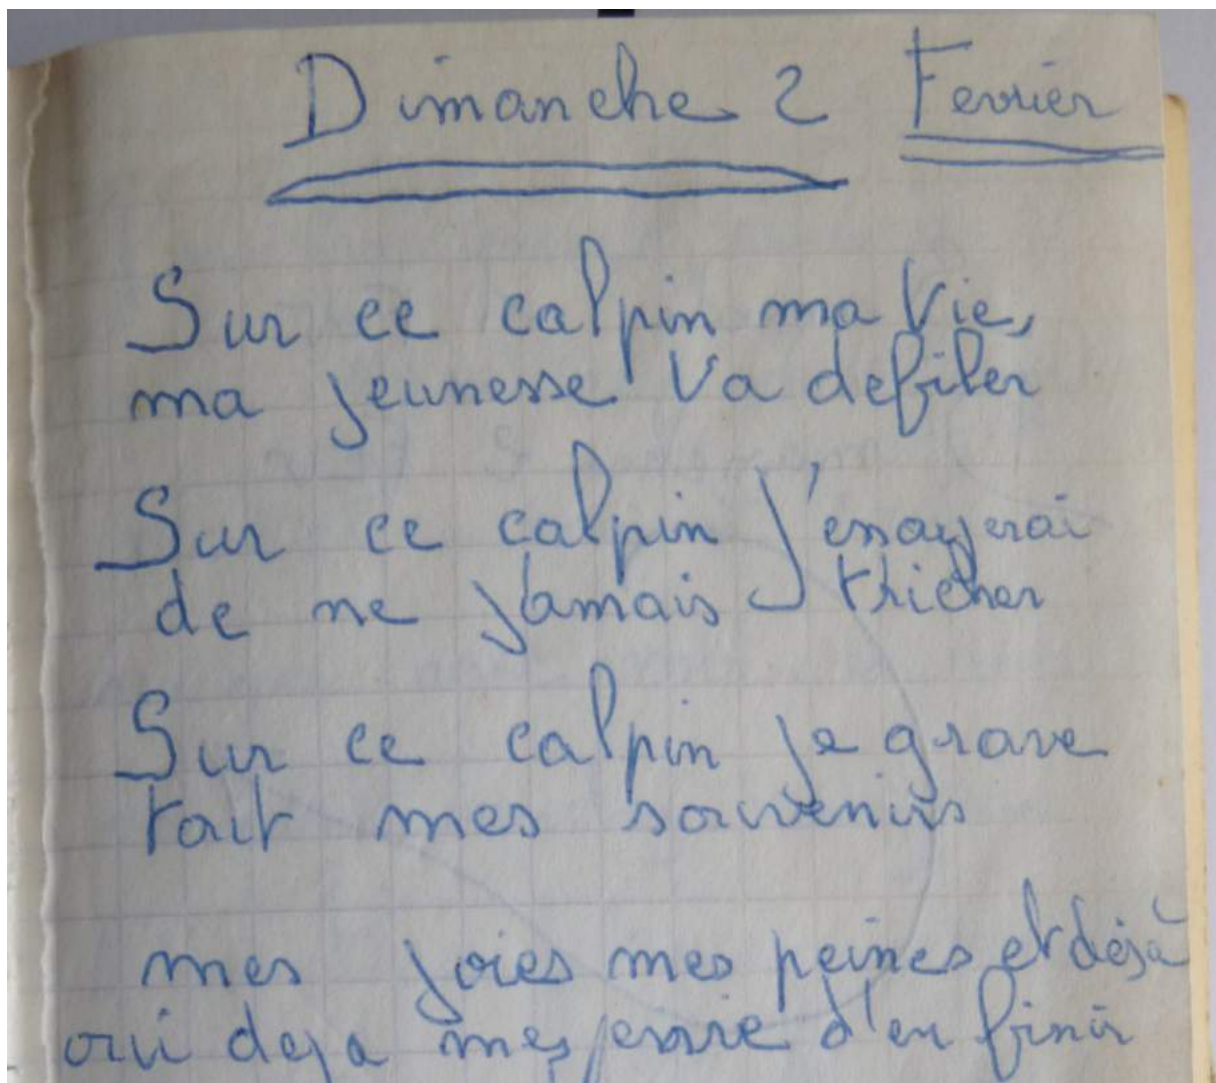 Dimanche 2 Fevrier
Sur ce calpin ma Vie,
ma jeunesse Va defiler
Sur ce calpin J'essayerai
de ne jamais tricher
Sur ce calpin je grave
tout mes souvenirs
mes joies mes peines et déjà
oui deja mes envie d'en finir